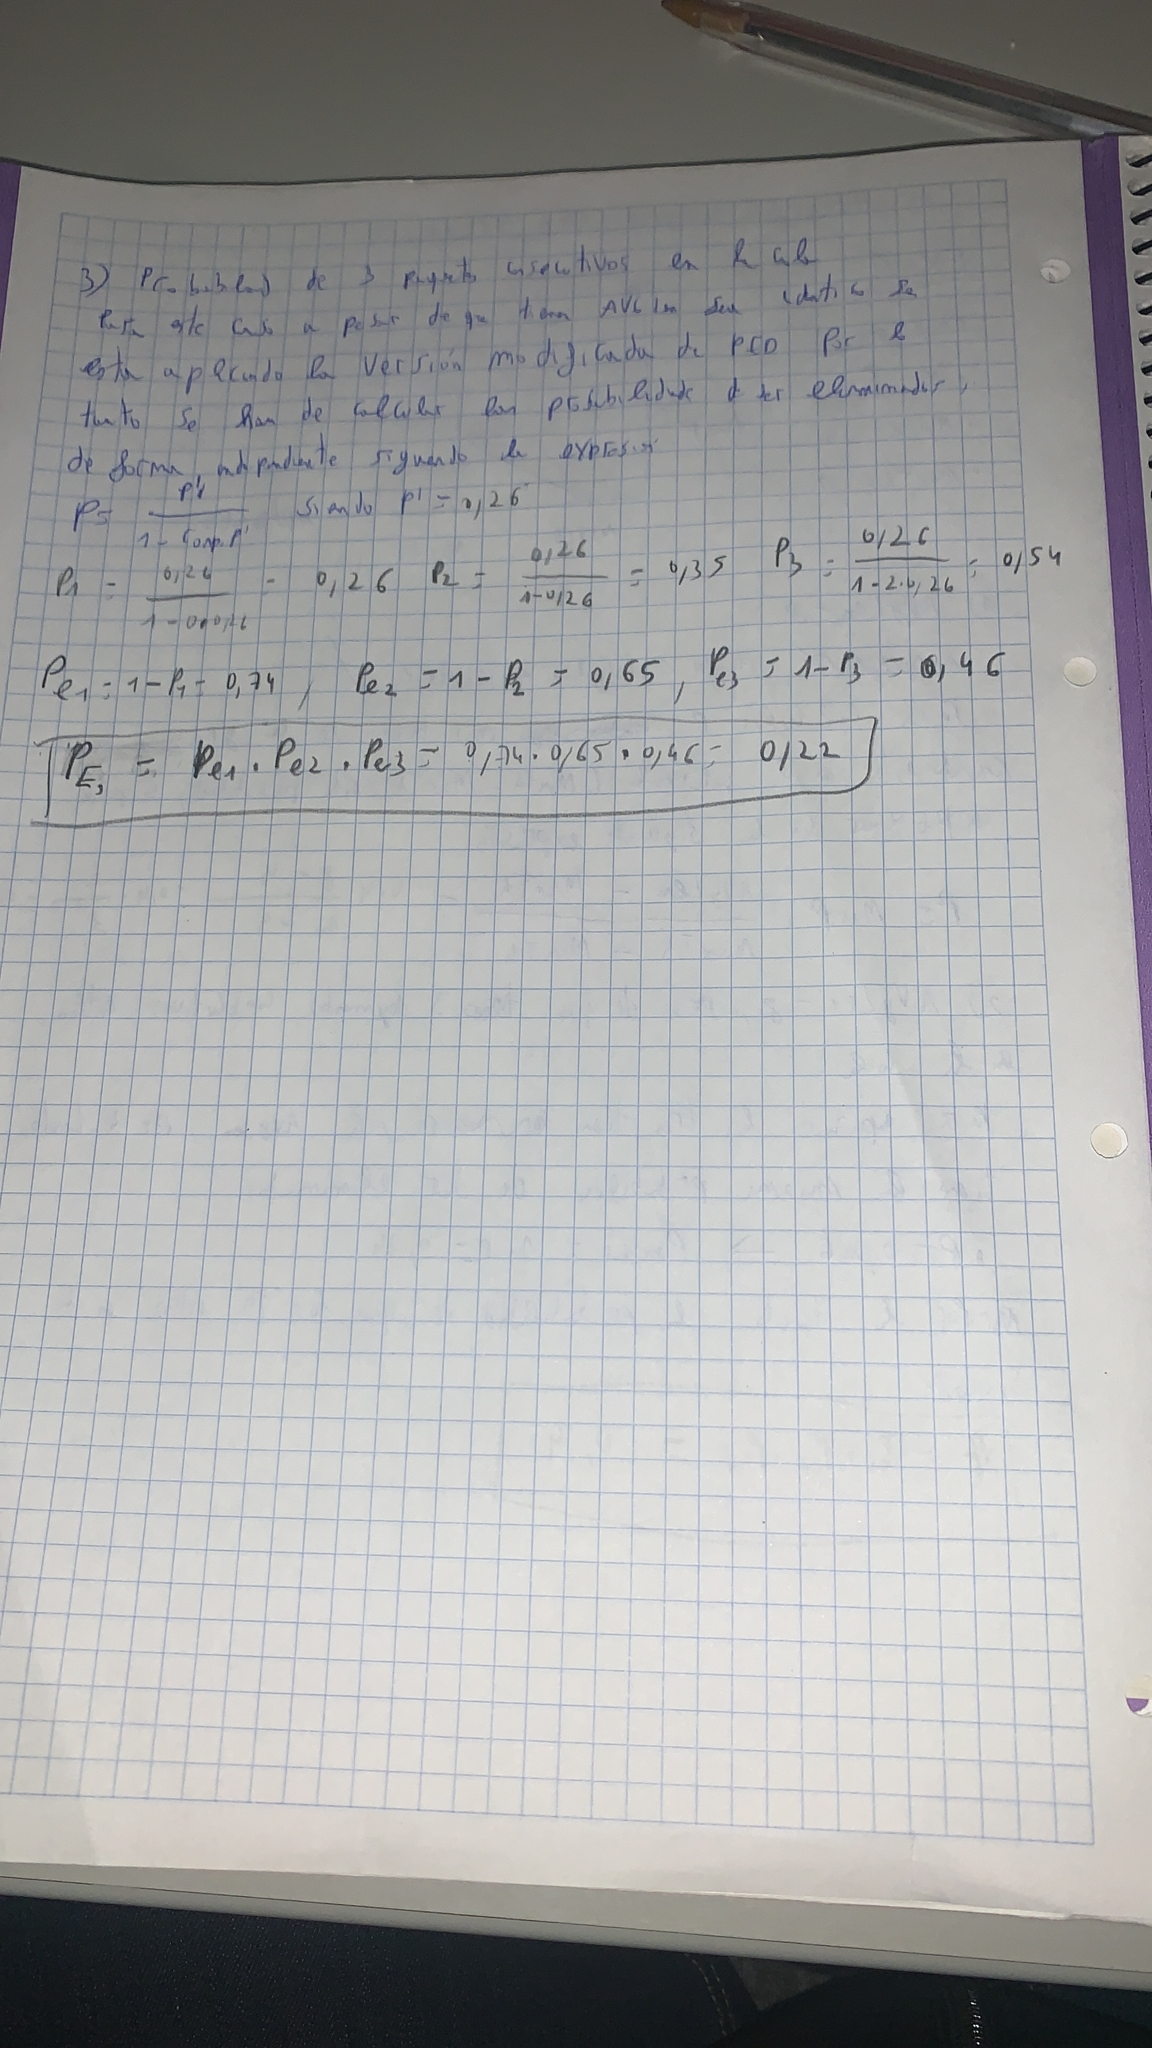 3) Probabilidad de 3 paquetes consecutivos en la cola
Para este caso a pesar de que tienen AVGlen sea identico se
esta aplicando la versión modificada de RED por lo
tanto se han de calcular las probabilidades de ser eliminados,
de forma independiente siguiendo la expresión
P = P' / (1 - Conp.P') siendo P' = 0,26
P1 = 0,26 / (1-0·0,26) = 0,26 P2 = 0,26 / (1-0,26) = 0,35 P3 = 0,26 / (1-2·0,26) = 0,54
Pe1 = 1-P1 = 0,74, Pe2 = 1-P2 = 0,65, Pe3 = 1-P3 = 0,46
PE3 = Pe1 · Pe2 · Pe3 = 0,74 · 0,65 · 0,46 = 0,22